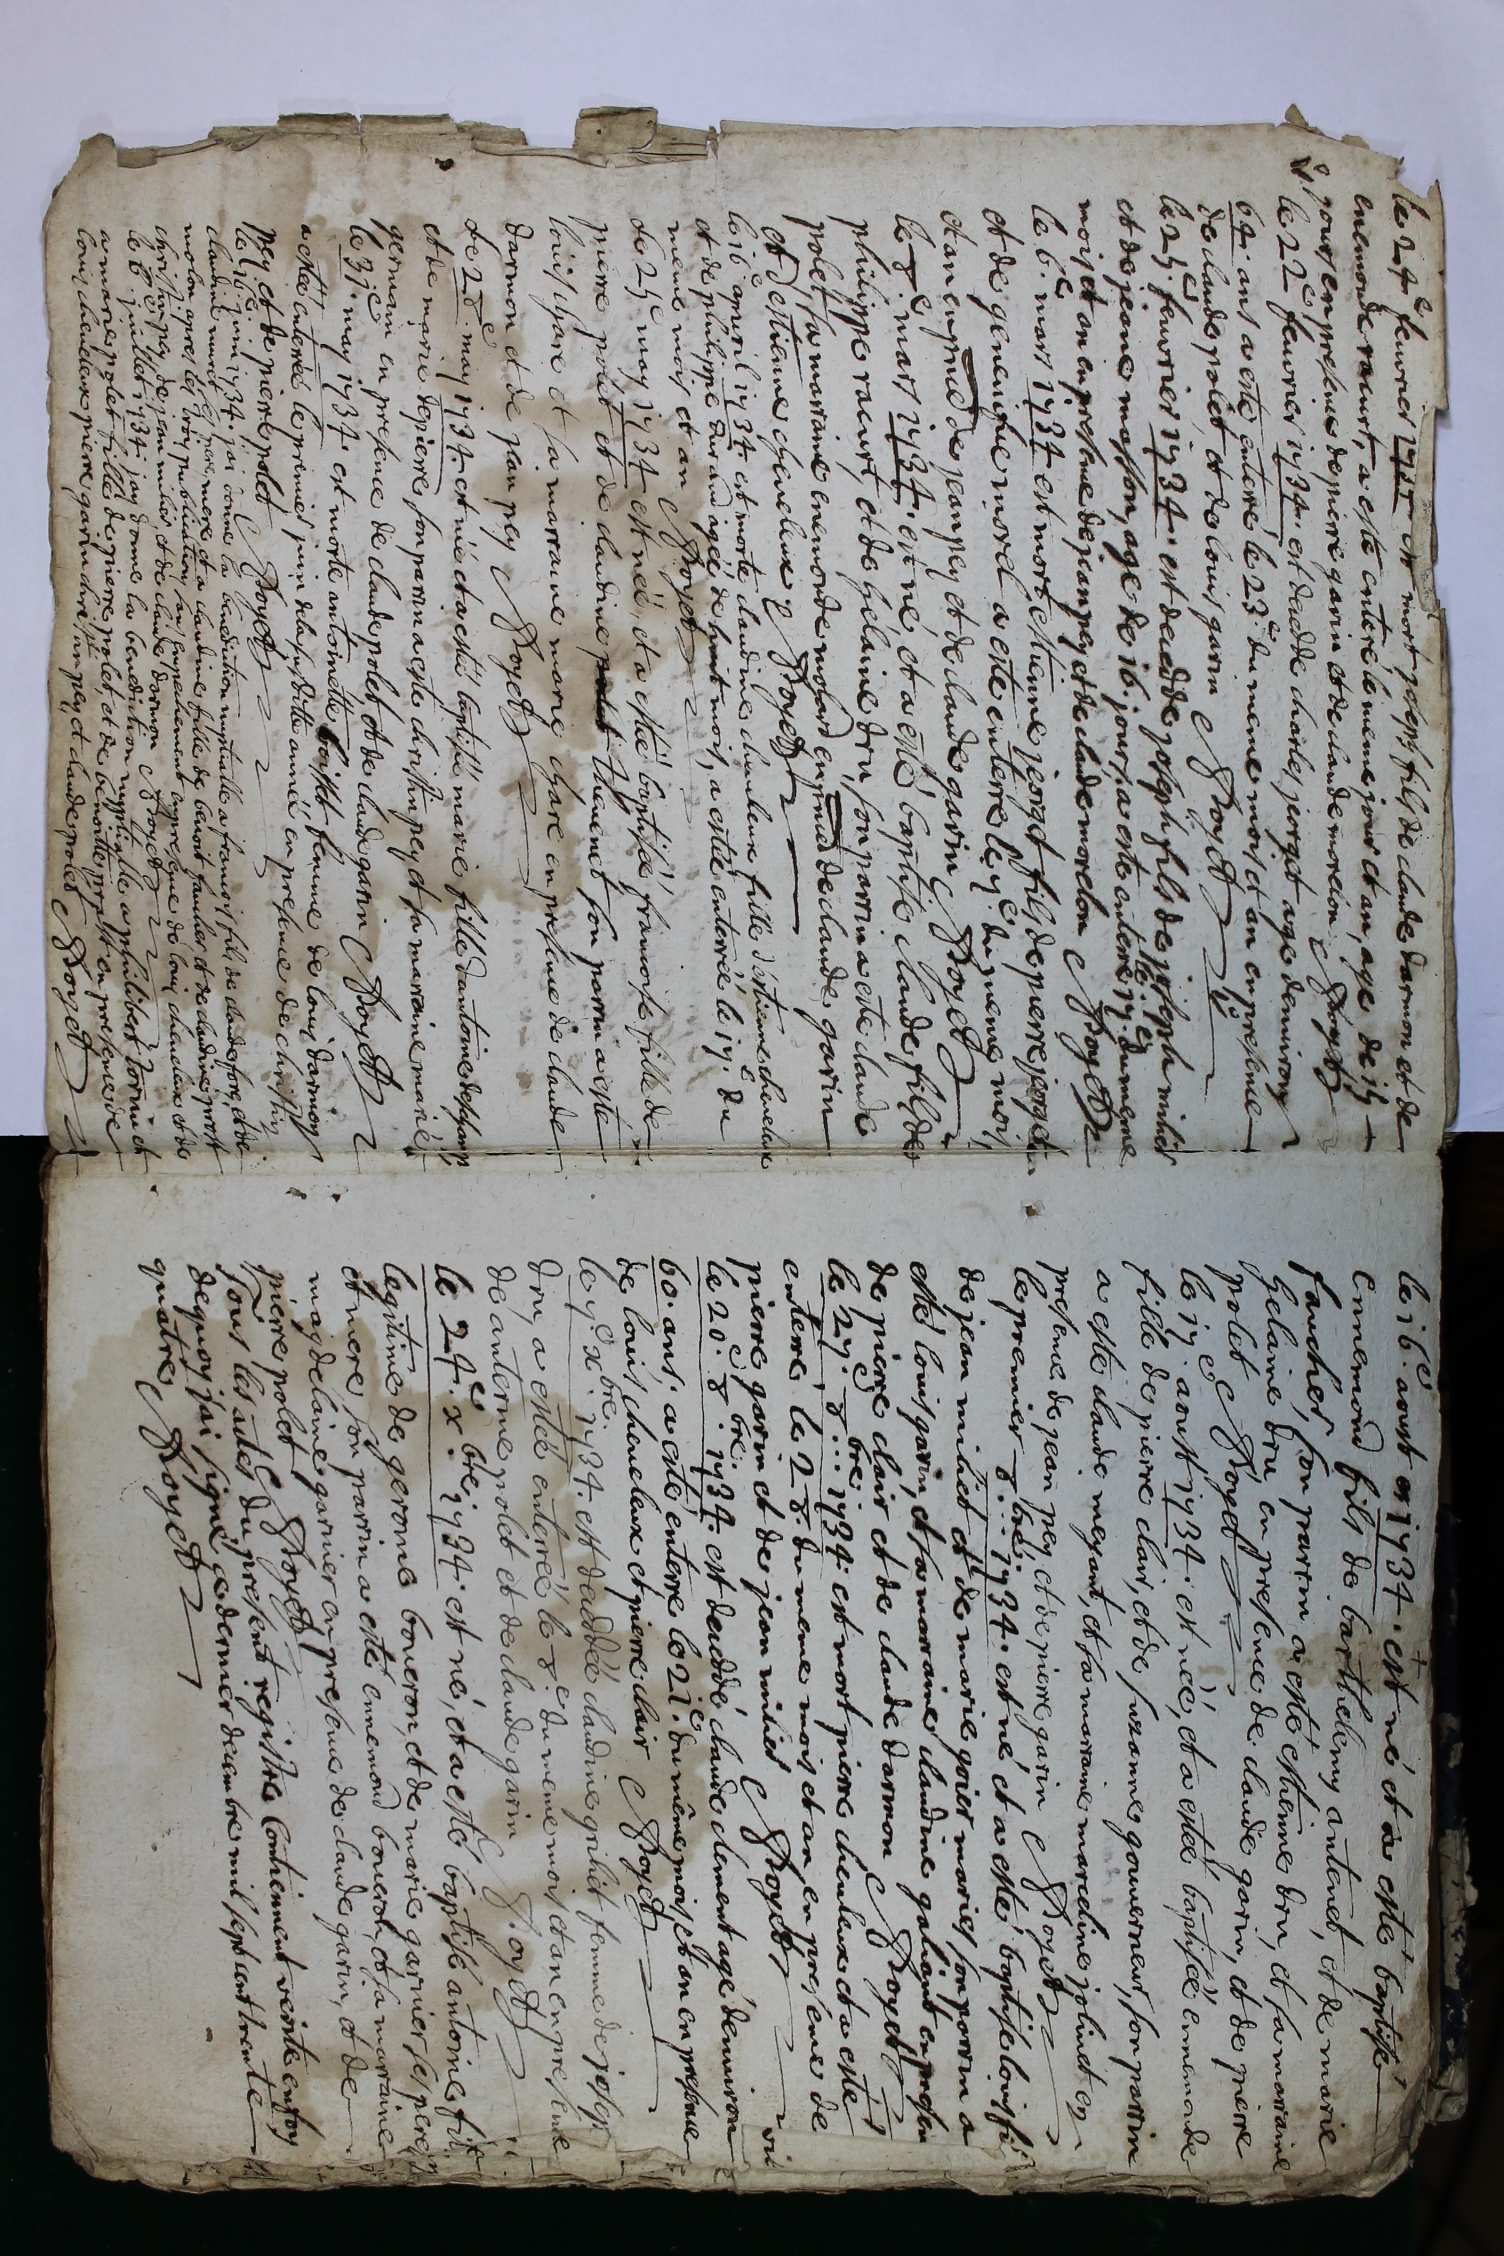 le 24e feuvrier 1734 est mort joseph fils de claude darmon et de
enemonde racurt, a esté enterré le meme jour et an, age de 15
jours en presence de pierre garin et de claude morelon Royet
le 22e feuvrier 1734. est deceddé charles jorgat age denuirons
64. ans a esté enterré le 23e du meme mois et an en presence
de claude polet, et de louis garin Royet
le 25e feuvrier 1734. est deceddé joseph fils de joseph miliet
et de jeane masson, age de 16. jours, a esté enterré du meme
mois et an en presence de jean pey et de claude morelon Royet
le 6e mars 1734 est mort estienne jeorgat fils de pierre jeorgat
et de geneuiefue morel a esté enterré le 7e du meme mois
et an en pnce de jean pey et de claude garin Royet
le 8e mars 1734. est né, et a esté baptisé claude fils de
philippe racurt, et de gelaine dru, son parrin a esté claude
polet, sa marraine enemonde mohard en pnce de claude garin
et destienne cheueleux Royet
le 16e apuril 1734. est morte claudine cheuleux fille destienne cheueleux
et de philippe durand agée de huit mois, a estée enterrée le 17e du
meme mois et an Royet
le 25e may 1734 est née, et a estée baptisée francoise fille de
pierre polet et de claudine thuenet son parrin a esté
louis chare et sa marraine marie chare en presence de claude
darmon et de jean pey Royet
le 28e may 1734. est né et a estée baptisée marie fille dantoine
et de marie son parrin a esté christin pey et sa marraine marie
germain en presence de claude polet, et de claude garin Royet
le 31e may 1734 est morte antoinette femme de louis darmon
a estée enterrée le premier juin de la susditte année en presence de christin
pey et de pierre polet Royet
le 16e juin 1734. jai donné la benediction nuptialle a francois fils de claude et de
claudine ses pere, mere et a claudine fille de benoit faucher et de claudine
apres les trois publications sans empechement en presence de louis cheueleux et de
christin pey de jean miliet et de claude darmon Royet
le 6e juillet 1734 jay donné la benediction nuptialle a philibert et
a marie polet fille de pierre polet, et de benoitte en presence de
louis cheueleux pierre garin jean pey et claude polet Royet
le 16e aoust 1734. est né et a esté baptisé
ennemond fils de barthelemy antenet, et de marie
faucher, son parrin a esté estienne dru, et sa marraine
gelaine dru en presence de claude garin, et de pierre
polet Royet
le 17e aoust 1734. est née, et a estée baptisée ennemonde
fille de pierre clair, et de suzanne gouuerneur, son parrin
a esté claude meysant, et sa marraine marceline jolinet en
presence de jean pey, et de pierre garin Royet
le premier 8.bre. 1734. est né et a esté baptisé louis fils
de jean miliet et de marie goier mariés, son parrin a
esté louis garin, et sa marraine claudine galiant en presence
de pierre clair et de claude darmon Royet
le 27e 8.bre. 1734. est mort pierre cheuleux et a esté
enterré le 28. du meme mois et an, en presence de
pierre garin et de jean miliet Royet
le 20e 8.bre. 1734. est deceddé claude clement agé denuiron
60. ans. a esté enterré le 21e du même mois et an en presence
de louis cheueleux et pierre clair Royet
le 7e x.bre. 1734. est deceddée claudine grilet femme de joseph
dru, a estée enterrée le 8e du meme mois et an en presence
de anterme polet et de claude garin Royet
le 24e x.bre. 1734. est né, et a esté baptisé antoine fils
legitime de gerome boueron, et de marie garnier, ses pere
et mere, son parrin a esté ennemond boueron, et sa marraine
magdelaine garnier en presence de claude garin, et de
pierre polet Royet
Tous les actes du present registre contiennent verité en foy
dequoy j'ai signé ce dernier decembre mil sept cent trente
quatre Royet